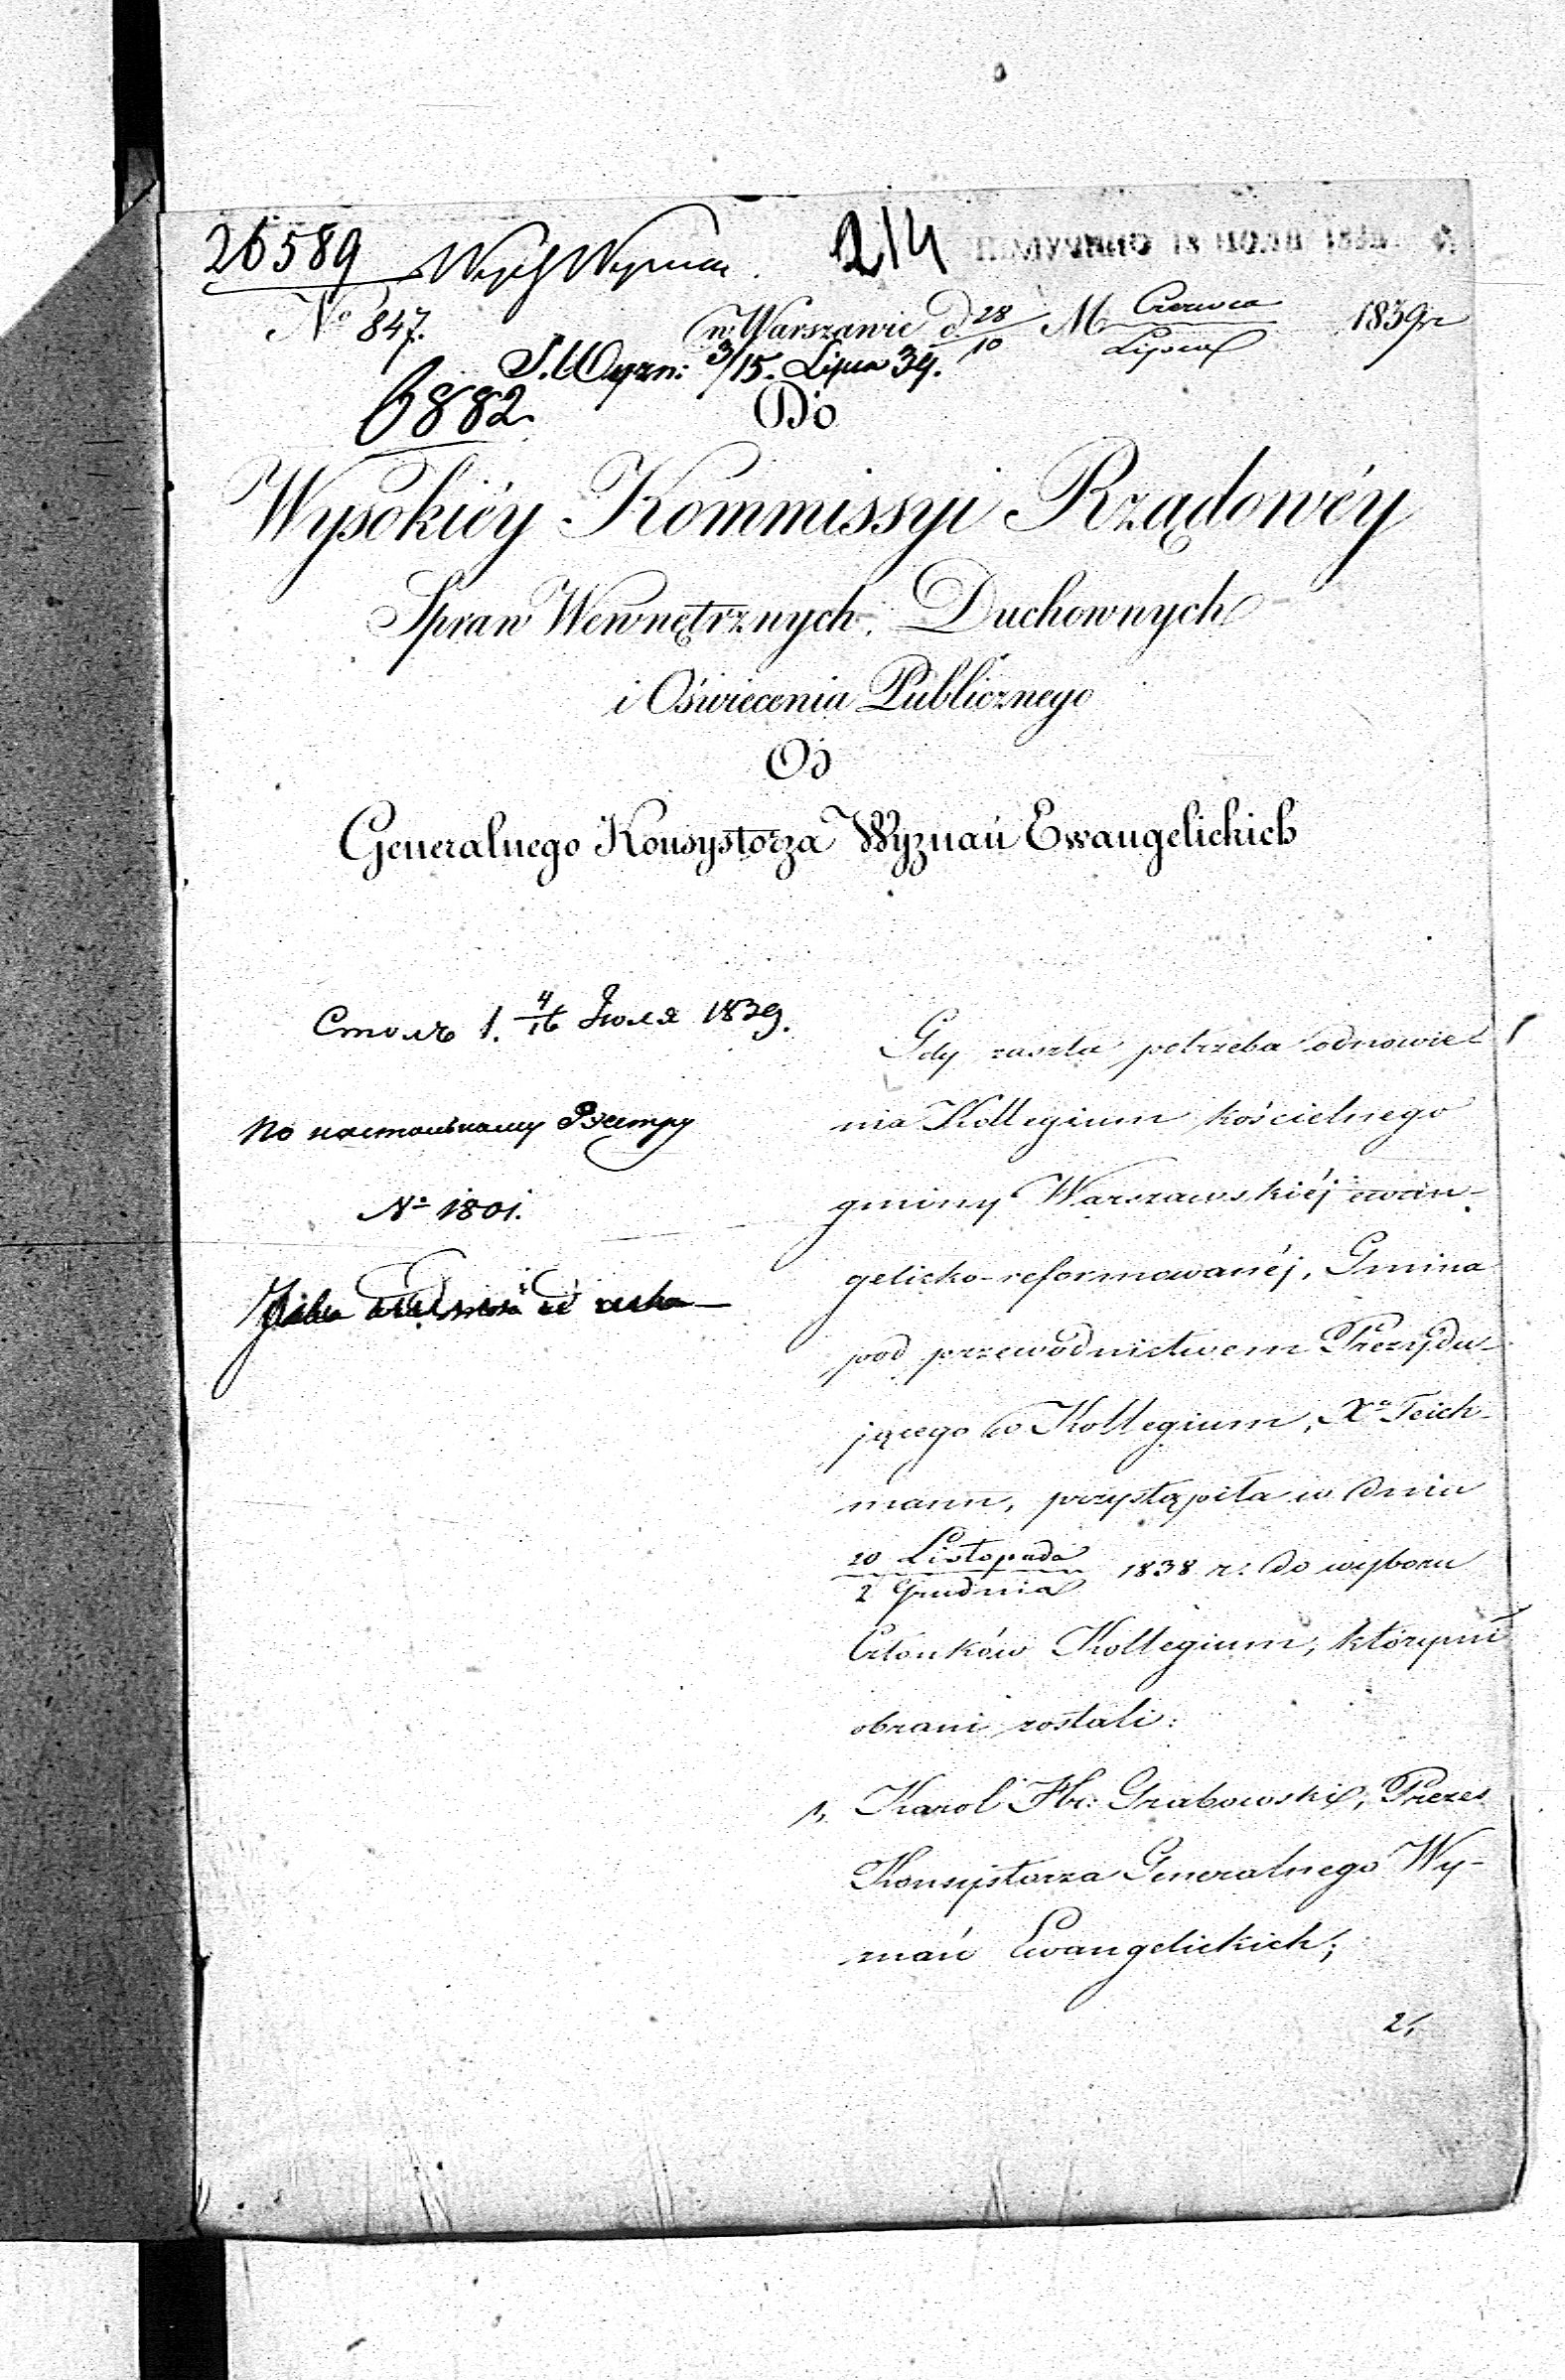 26589 Wysł Wyznań. 214 ПОЛУЧЕНО 18 ІЮЛЯ 1839 г.
No 847. w Warszawie d 28/10 M Czerwca/Lipca 1839 r
S. Wyzn: 3/15. Lipca 39.
6882
Do
Wysokiéy Kommissyi Rządowéy
Spraw Wewnętrznych, Duchownych
i Oświecenia Publicznego
Od
Generalnego Konsystorza Wyznań Ewangelickich
Столъ 1. 4/16 Іюля 1839.
По настольному Реестру
No 1801.
Gdy zaszła potrzeba odnowie-
nia Kollegium kościelnego
gminy Warszawskiéj ewan-
gelicko-reformowanéj, Gmina
pod przewodnictwem Prezydu-
jącego w Kollegium, Xa Teich-
mann, przystąpiła w dniu
20 Listopada/2 Grudnia 1838 r: do wyboru
Członków Kollegium, którymi
obrani zostali:
1, Karol Hr: Grabowski, Prezes
Konsystorza Generalnego Wy-
znań Ewangelickich;
2,